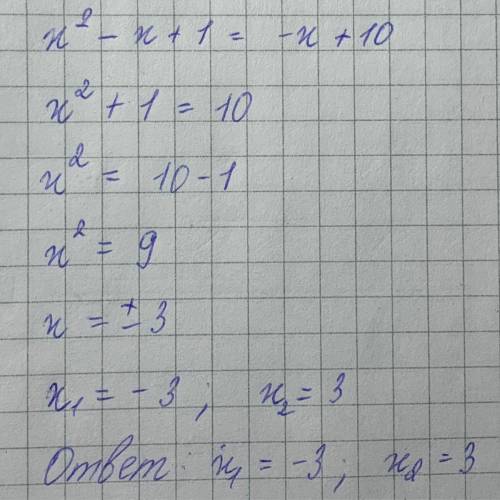 x² - x + 1 = -x + 10
x² + 1 = 10
x² = 10 - 1
x² = 9
x = ± 3
x₁ = - 3 ; x₂ = 3
Ответ: x₁ = -3 ; x₂ = 3